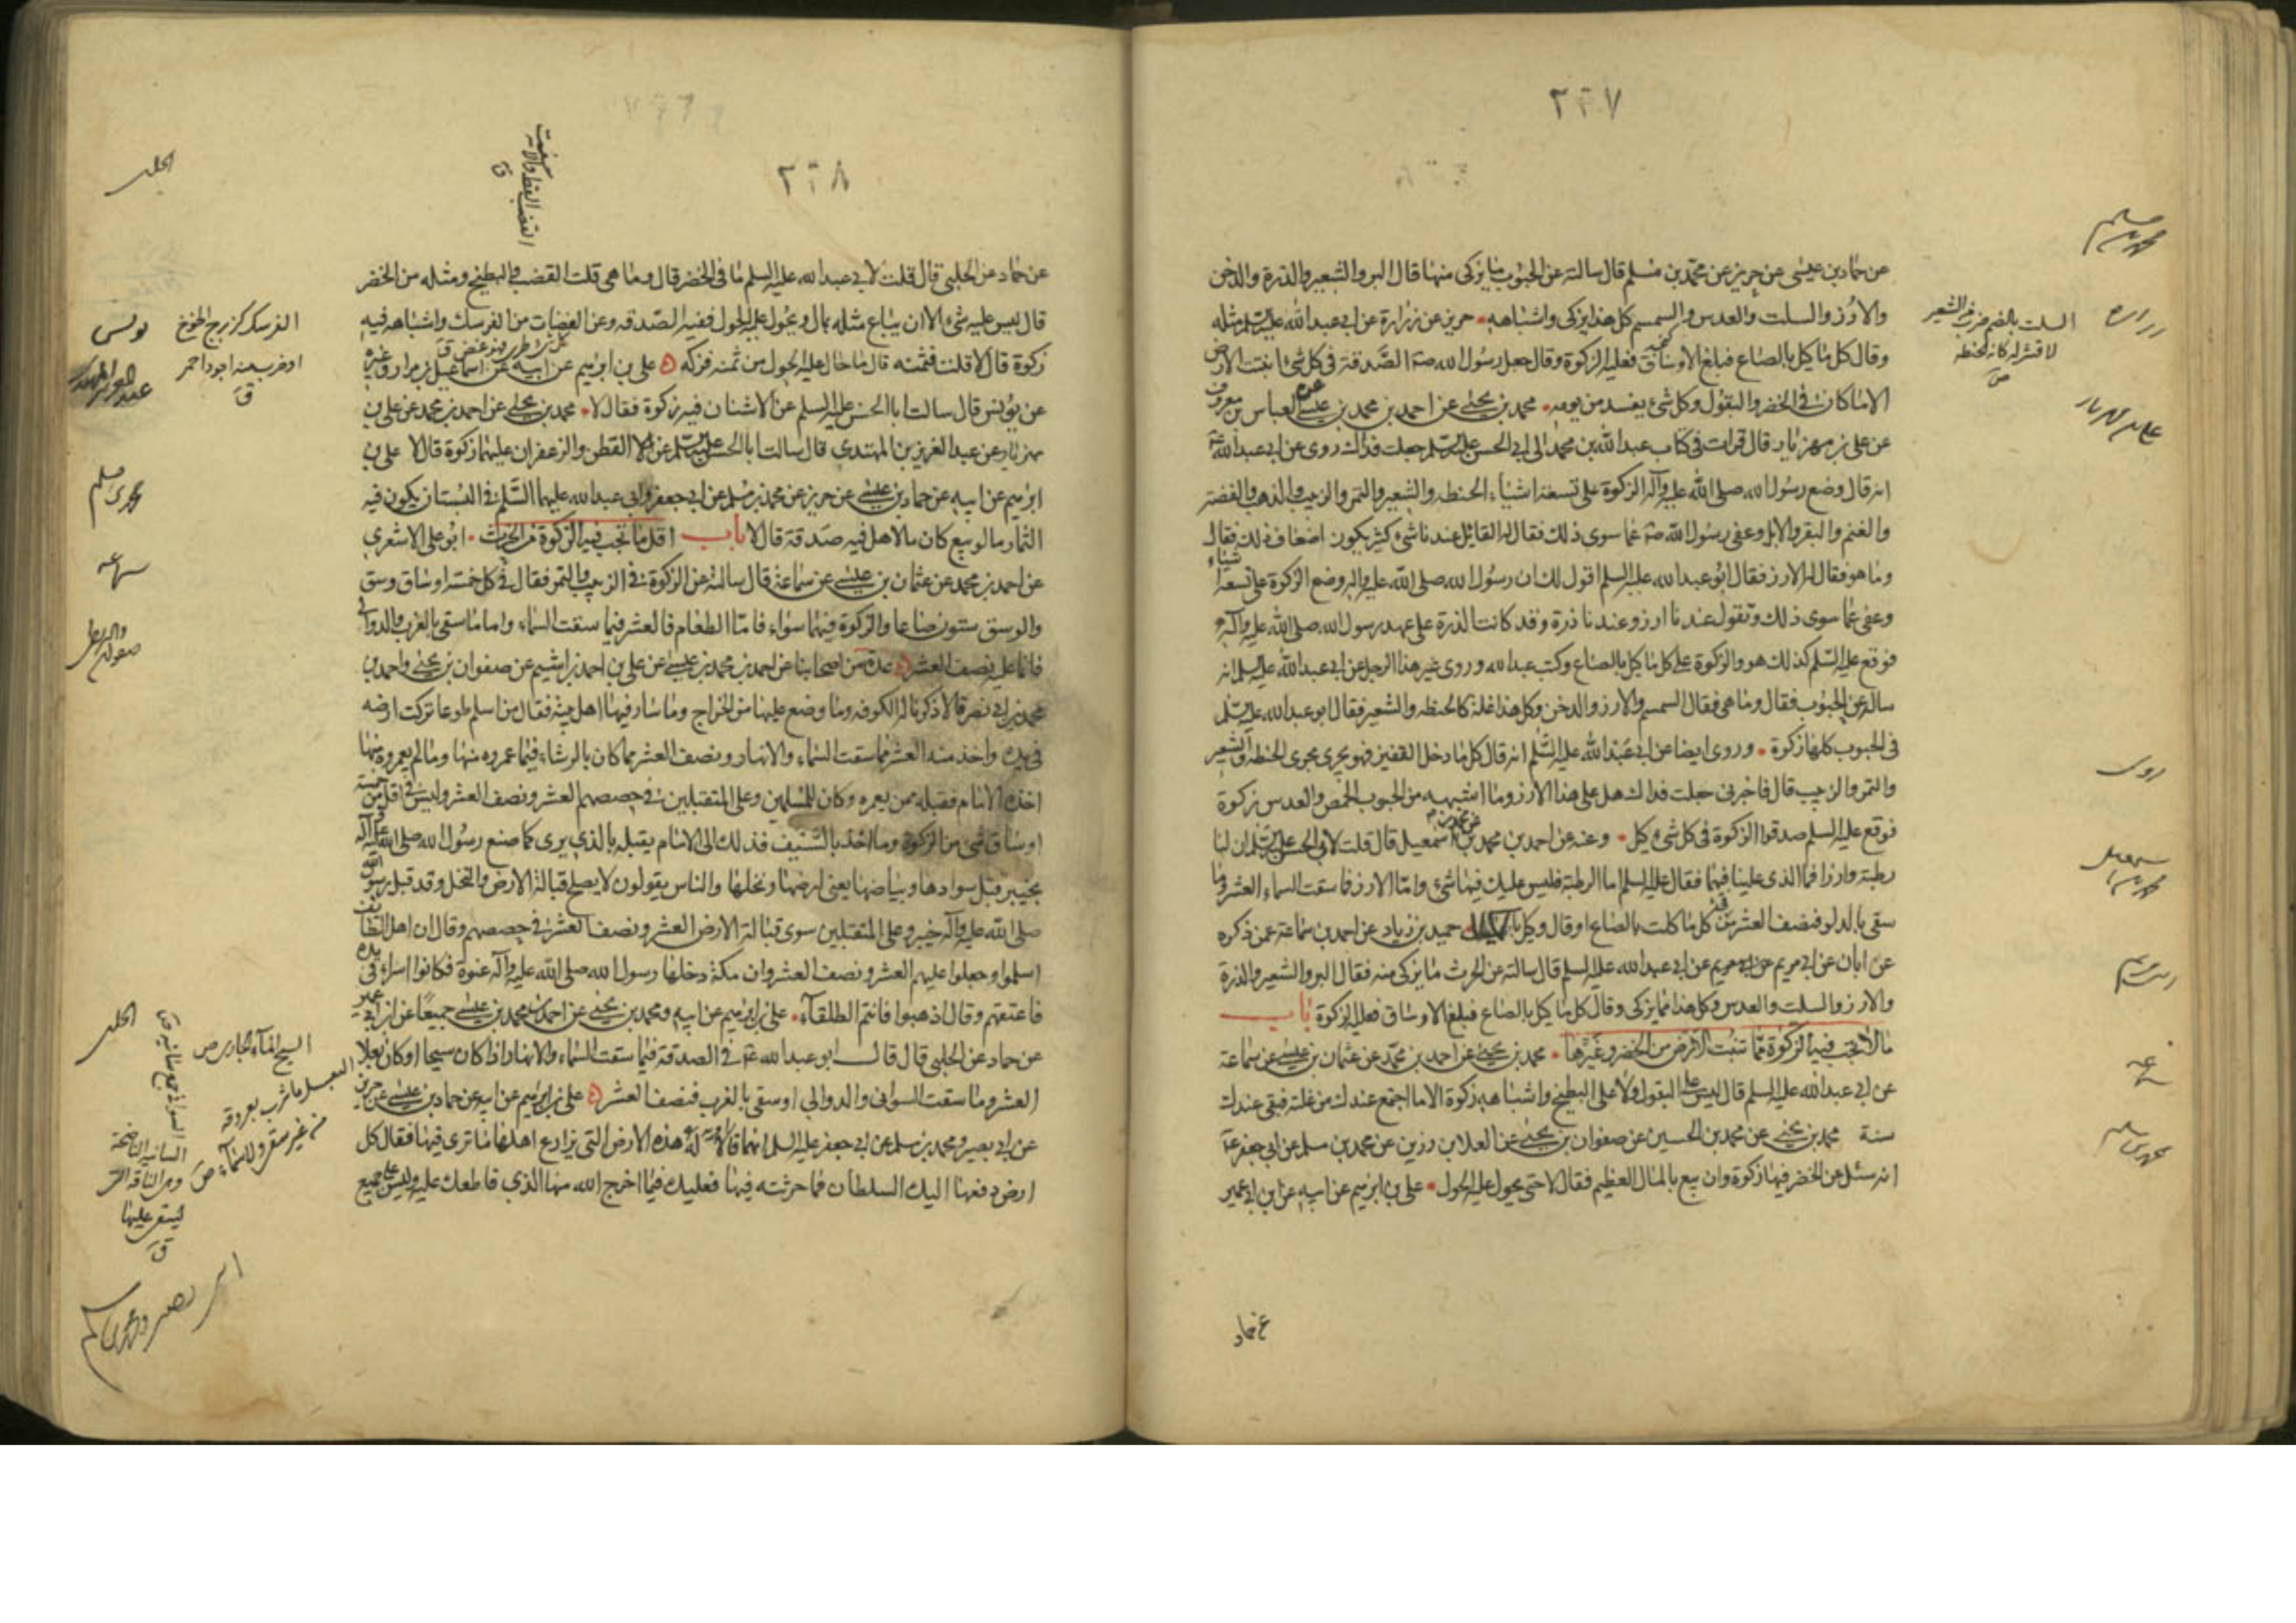 ٢٣٧
عن حماد بن عيسى عن حريز عن محمد بن مسلم قال سالته عن الحبوب ما يزكى منها قال البر والشعير والذرة والدخن
والارز والسلت والعدس والسمسم كل هذا يزكى واشباهه حريز عن زرارة عن ابي عبد الله عليه السلم مثله
وقال كل ما كيل بالصاع فبلغ الاوساق فعليه الزكوة وقال جعل رسول الله صه الصدقة في كل شئ انبتت الارض
الا ما كان في الخضر والبقول وكل شئ يفسد من يومه محمد بن يحيى عن احمد بن محمد بن عيسى عن العباس بن معروف
عن علي بن مهزيار قال قرات في كتاب عبد الله بن محمد الى ابي الحسن عليه السلم جعلت فداك روى عن ابي عبد الله ع
انه قال وضع رسول الله صلى الله عليه وآله الزكوة على تسعة اشياء الحنطة والشعير والتمر والزبيب والذهب والفضة
والغنم والبقر والابل وعفى رسول الله صه عما سوى ذلك فقال له القائل عندنا شئ كثير يكون اضعاف ذلك فقال
وما هو فقال له الارز فقال ابو عبد الله عليه السلم اقول لك ان رسول الله صلى الله عليه واله وضع الزكوة على تسعة اشياء
وعفى عما سوى ذلك وتقول عندنا ارز وعندنا ذرة وقد كانت الذرة على عهد رسول الله صلى الله عليه وآله
فوقع عليه السلم كذلك هو والزكوة على كل ما كيل بالصاع وكتب عبد الله وروى غير هذا الرجل عن ابي عبد الله عليه السلم انه
ساله عن الحبوب فقال وما هي فقال السمسم والارز والدخن وكل هذا غلة كالحنطة والشعير فقال ابو عبد الله عليه السلم
في الحبوب كلها زكوة وروى ايضا عن ابي عبد الله عليه السلم انه قال كل ما دخل القفيز فهو يجري مجرى الحنطة والشعير
والتمر والزبيب قال فاخبرني جعلت فداك هل على هذا الارز وما اشبهه من الحبوب الحمص والعدس زكوة
فوقع عليه السلم صدقوا الزكوة في كل شئ كيل وعنه عن احمد بن محمد عن محمد بن اسمعيل قال قلت لابي الحسن عليه السلم ان لنا
رطبة وارزا فما الذي علينا فيها فقال عليه السلم اما الرطبة فليس عليك فيها شئ واما الارز فما سقت السماء العشر وما
سقى بالدلو فنصف العشر من كل ما كلت بالصاع او قال وكيل بالمكيال حميد بن زياد عن احمد بن سماعة عمن ذكره
عن ابان عن ابي مريم عن ابي عبد الله عليه السلم قال سالته عن الحرث ما يزكى منه فقال البر والشعير والذرة
والارز والسلت والعدس وكل هذا مما يزكى وقال كل ما كيل بالصاع فبلغ الاوساق فعليه الزكوة باب
ما لا تجب فيه الزكوة مما تنبت الارض من الخضر وغيرها محمد بن يحيى عن احمد بن محمد عن عثمان بن عيسى عن سماعة
عن ابي عبد الله عليه السلم قال ليس على البقول ولا على البطيخ واشباهه زكوة الا ما اجتمع عندك من غلته فبقي عندك
سنة محمد بن يحيى عن محمد بن الحسين عن صفوان بن يحيى عن العلا بن رزين عن محمد بن مسلم عن ابي جعفر ع
انه سئل عن الخضر فيها زكوة وان بيع بالمال العظيم فقال لا حتى يحول عليه الحول علي بن ابرهيم عن ابيه عن ابن ابي عمير
عن حماد
محمد بن مسلم
زراره
السلت بالضم ضرب من الشعير
لا قشر له كانه الحنطة
ص
علي بن مهزيار
روى
محمد بن اسمعيل
ابي مريم
سماعه
محمد بن مسلم
٢٣٨
القضب القط والاسفست
ق
عن حماد عن الحلبي قال قلت لابي عبد الله عليه السلم ما في الخضر قال وما هي قلت القضب والبطيخ ومثله من الخضر
قال ليس عليه شئ الا ان يباع مثله بمال ويحول عليه الحول ففيه الصدقة وعن الغضات من الفرسك واشباهه فيه
زكوة قال لا قلت فثمنه قال ما حال عليه الحول من ثمنه فزكه علي بن ابرهيم عن ابيه عن اسماعيل بن مرار وغيره
عن يونس قال سالت ابا الحسن عليه السلم عن الاشنان فيه زكوة فقال لا محمد بن يحيى عن احمد بن محمد عن علي بن
مهزيار عن عبد العزيز بن المهتدي قال سالت ابا الحسن عليه السلم عن القطن والزعفران عليهما زكوة قال لا علي بن
ابرهيم عن ابيه عن حماد بن عيسى عن حريز عن محمد بن مسلم عن ابي جعفر وابي عبد الله عليهما السلم في البستان يكون فيه
الثمار ما لو بيع كان مالا هل فيه صدقة قال لا باب اقل ما تجب فيه الزكوة من الحرث ابو علي الاشعري
عن احمد بن محمد عن عثمان بن عيسى عن سماعة قال سالته عن الزكوة في الزبيب والتمر فقال في كل خمسة اوساق وسق
والوسق ستون صاعا والزكوة فيهما سواء فاما الطعام فالعشر فيما سقت السماء واما ما سقى بالغرب والدوالي
فانما عليه نصف العشر عدة من اصحابنا عن احمد بن محمد بن عيسى عن علي بن احمد بن اشيم عن صفوان بن يحيى واحمد بن
محمد بن ابي نصر قالا ذكرنا له الكوفه وما وضع عليها من الخراج وما سار فيها اهل بيته فقال من اسلم طوعا تركت ارضه
في يده واخذ منه العشر مما سقت السماء والانهار ونصف العشر مما كان بالرشاء فيما عمروه منها وما لم يعمروه منها
اخذه الامام فقبله ممن يعمره وكان للمسلمين وعلى المتقبلين في حصصهم العشر ونصف العشر وليس في اقل من خمسة
اوساق شئ من الزكوة وما اخذ بالسيف فذلك الى الامام يقبله بالذي يرى كما صنع رسول الله صلى الله عليه وآله
بخيبر قبل سوادها وبياضها يعني ارضها ونخلها والناس يقولون لا يصلح قبالة الارض والنخل وقد قبل رسول الله
صلى الله عليه وآله خيبر وعلى المتقبلين سوى قبالة الارض العشر ونصف العشر في حصصهم وقال ان اهل الطائف
اسلموا وجعلوا عليهم العشر ونصف العشر وان مكة دخلها رسول الله صلى الله عليه وآله عنوة فكانوا اسراء في يده
فاعتقهم وقال اذهبوا فانتم الطلقاء علي بن ابرهيم عن ابيه ومحمد بن يحيى عن احمد بن محمد بن عيسى جميعا عن ابن ابي عمير
عن حماد عن الحلبي قال قال ابو عبد الله ع في الصدقة فيما سقت السماء والانهار اذا كان سيحا او كان بعلا
العشر وما سقت السواني والدوالي او سقى بالغرب فنصف العشر علي بن ابرهيم عن ابيه عن حماد بن عيسى عن حريز
عن ابي بصير ومحمد بن مسلم عن ابي جعفر عليه السلم انهما قالا له هذه الارض التي يزارع اهلها ما ترى فيها فقال كل
ارض دفعها اليك السلطان فما حرثته فيها فعليك فيما اخرج الله منها الذي قاطعك عليه وليس على جميع
الحلبي
الفرسك كزبرج الخوخ
او ضرب منه اجود احمر
ق
يونس
عبد العزيز المهتدي
محمد بن مسلم
سماعه
صفوان
الحلبي
السيح الماء الجاري ص
البعل ما شرب بعروقه
من غير سقي ولا سماء ص
السواني جمع سانية ق
السانية الناضحة
وهي الناقة التي
يستقى عليها
ق
ابي بصير ومحمد بن مسلم